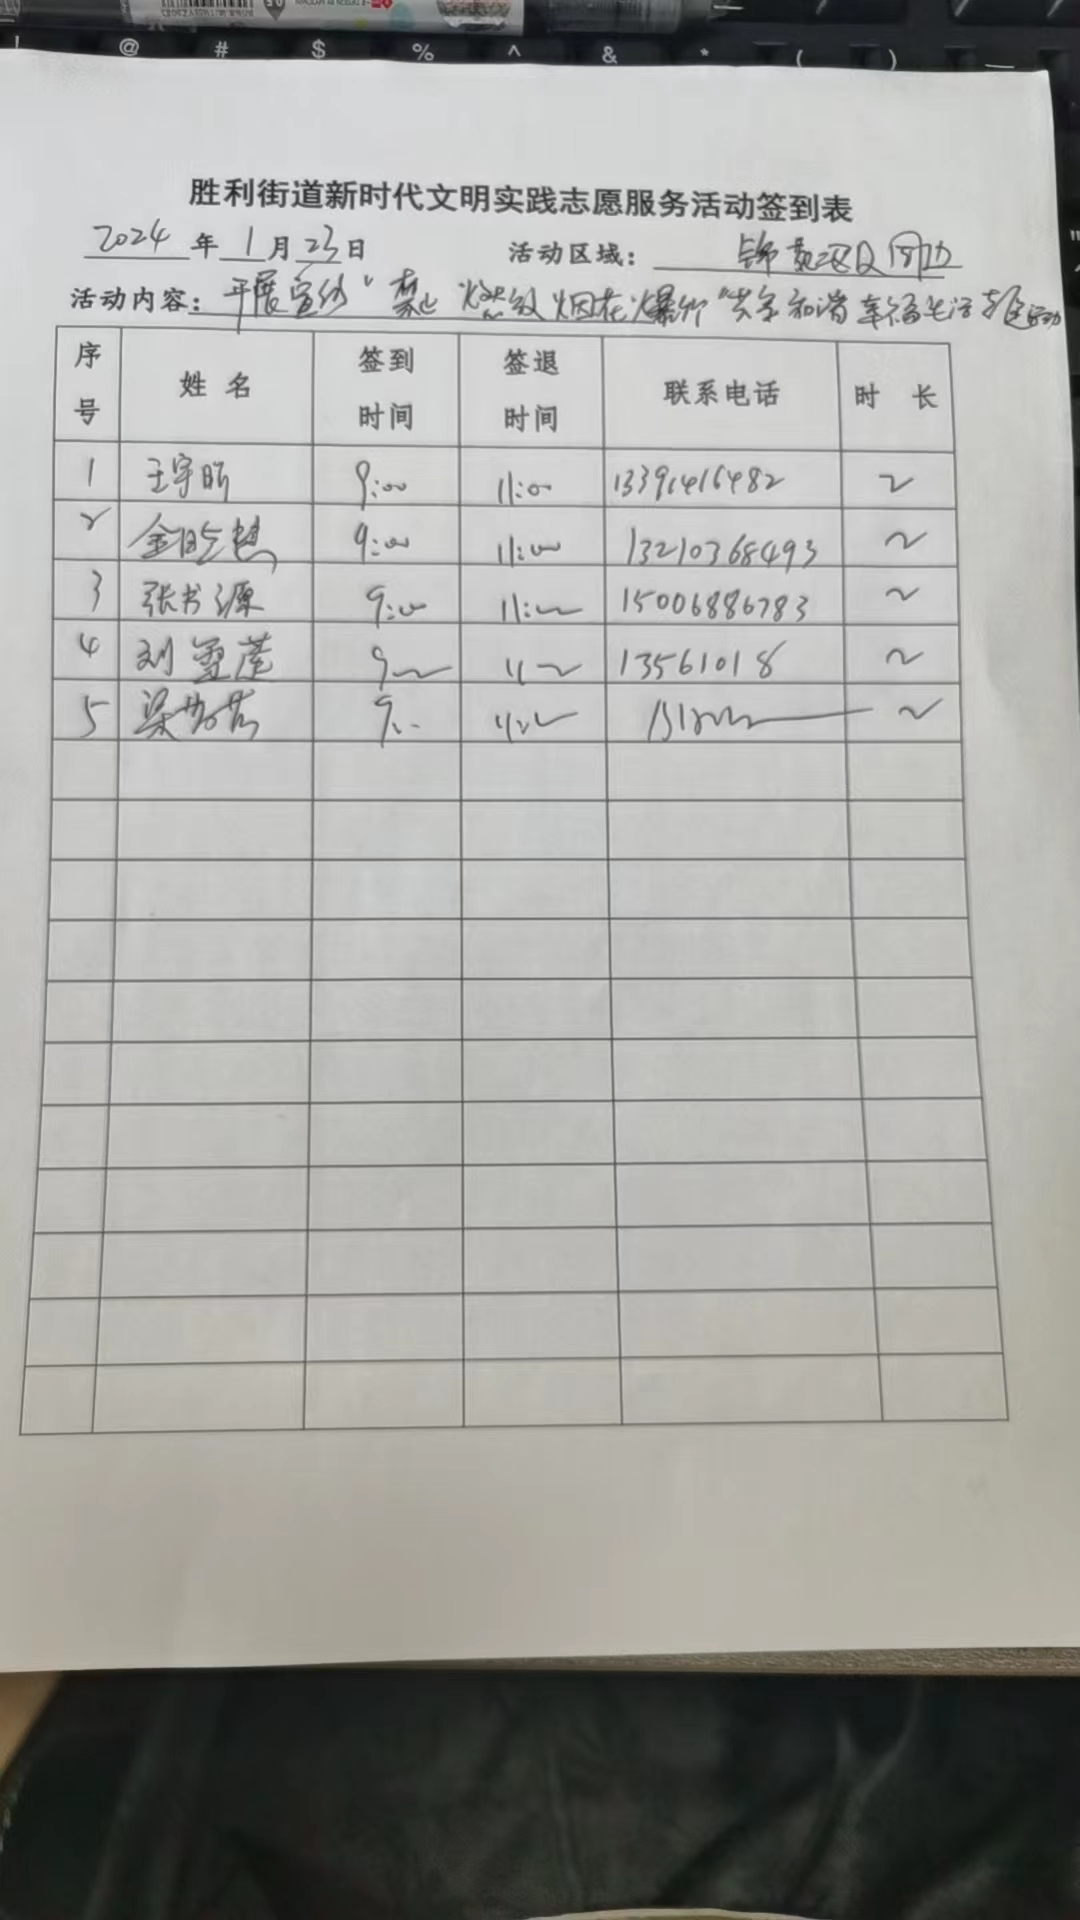 ! @ # $ % ^ & * ( ) _
胜利街道新时代文明实践志愿服务活动签到表
2024 年 1 月 23 日 活动区域：
活动内容：开展宣传"禁止燃放烟花爆竹"共享和谐幸福生活
序号 姓 名 签到时间 签退时间 联系电话 时 长
1 王宇昕 9:00 11:00 13391416482 2
2 9:00 11:00 13210368493 2
3 张书源 9:00 11:00 15006886783 2
4 刘雪莲 9 11 13561018 2
5 梁 9 11 2